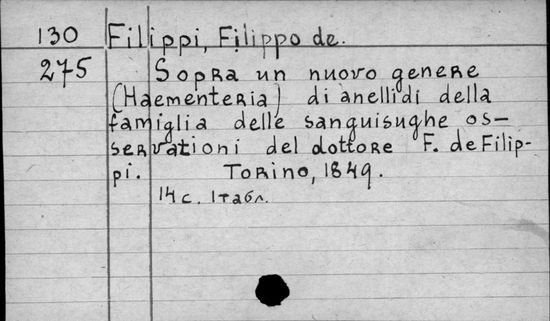 130 Filippi, Filippo de.
275 Sopra un nuovo genere
(Haementeria) di anellidi della
famiglia delle sanguisughe os-
servationi del dottore F. de Filip-
pi. Torino, 1849.
14 с. 1 табл.